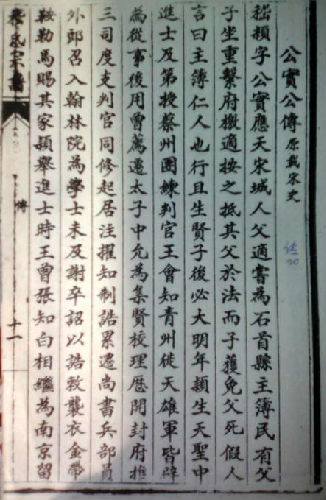 公實公傳 原載宋史
嵇頴字公實應天宋城人父適書為石首縣主簿民有父
子坐重繫府檄適按之抵其父於法而子獲免父死假人
言曰主簿仁人也行且生賢子後必大明年頴生天聖中
進士及第授蔡州團練判官王會知青州徒天雄軍皆辟
為從事後用曾薦遷太子中允為集賢校理歷開封府推
三司度支判官同修起居注擢知制誥累遷尚書兵部員
外郎召入翰林院為學士未及謝卒詔以誥敕襲衣金帶
鞍勒馬賜其家頴舉進士時王曾張知白相繼為南京留
嵇氏宗譜 傳 十一